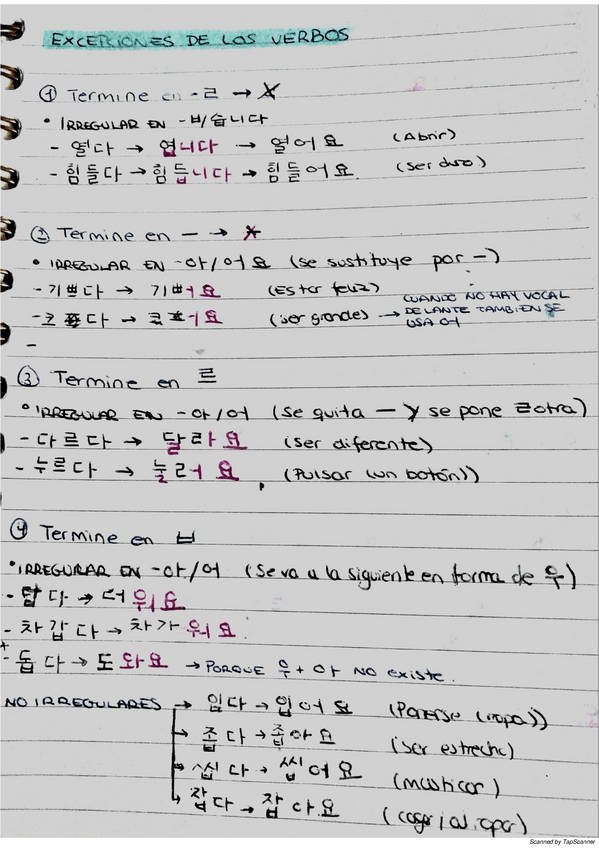 EXCEPCIONES DE LOS VERBOS
① Termine en -ㄹ → X
• IRREGULAR EN -ㅂ/습니다
- 열다 → 엽니다 → 열어요 (Abrir)
- 힘들다 → 힘듭니다 → 힘들어요. (ser duro)
② Termine en ㅡ → X
• IRREGULAR EN -아/어요 (se sustituye por -)
- 기쁘다 → 기뻐요 (Estar feliz)
- 크다 → 커요 (ser grandes) → CUANDO NO HAY VOCAL DELANTE TAMBIEN SE USA 어
-
③ Termine en 르
• IRREGULAR EN -아/어 (se quita ㅡ y se pone ㄹ otra)
- 다르다 → 달라요 (ser diferente)
- 누르다 → 눌러요 (Pulsar (un botón))
④ Termine en ㅂ
• IRREGURAR EN -아/어 (Se va a la siguiente en forma de 우)
- 덥다 → 더워요
- 차갑다 → 차가워요.
+
- 돕다 → 도와요 → PORQUE 우 + 아 NO existe.
NO IRREGULARES → 입다 → 입어요 (Ponerse (ropa))
→ 좁다 → 좁아요 (ser estrecho)
→ 씹다 → 씹어요 (masticar)
→ 잡다 → 잡아요 (coger
Scanned by TapScanner